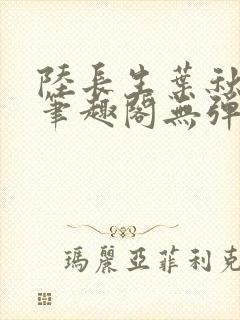 陸長生葉秋
筆趣閣無彈
瑪麗亞菲利克